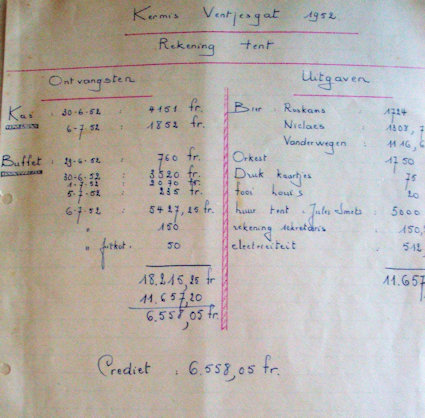 Kermis Ventjesgat 1952.
Rekening tent
Ontvangsten
Kas : 30-6-52 : 4151 fr.
6-7-52 : 1852 fr.
Buffet : 29-6-52 : 760 fr.
30-6-52 : 3520 fr.
1-7-52 : 2070 fr.
5-7-52 : 235 fr.
6-7-52 : 5427,25 fr
" 150
" 50
18.215,25 fr
11.657,20
6.558,05 fr.
Uitgaven
Bier : Roskans 1724
Niclaes : 1308,7
Vanderwegen : 1116,6
Orkest 1750
Druk kaartjes 75
fooi Louis 20
huur tent . Jules Smets : 5000
rekening sekretaris 150,
electriciteit 512
11.657
Crediet : 6.558,05 fr.